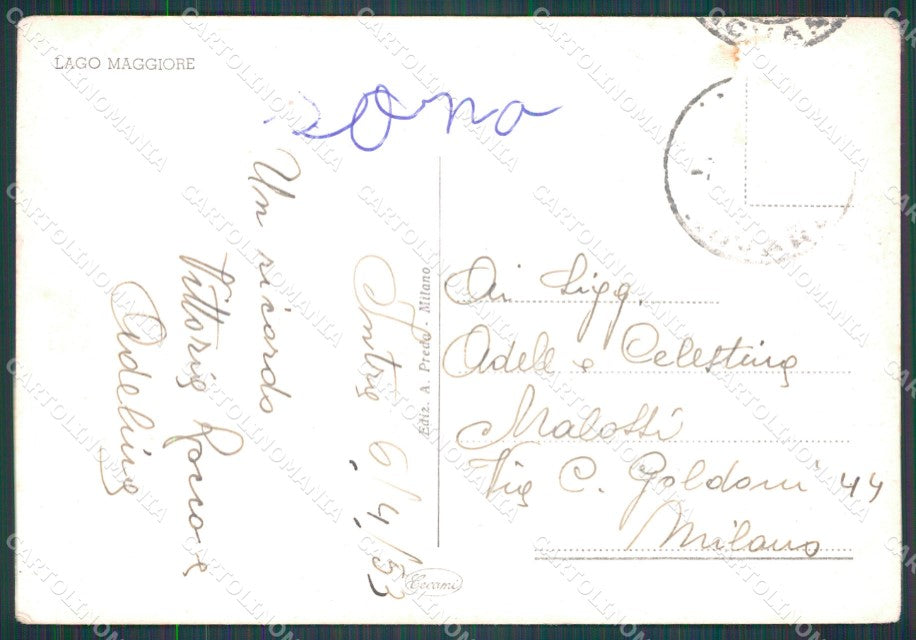 LAGO MAGGIORE
Un ricordo
Vittorio Rocco e
Adelina
Intra 6/4/53
Ediz. A. Preda - Milano
Ai Sigg.
Adele e Celestina
Malossi
Via C. Goldoni 44
Milano
CARTOLINOMANIA